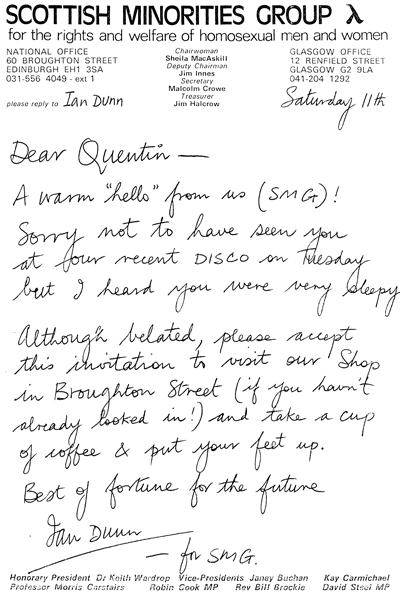 SCOTTISH MINORITIES GROUP λ
for the rights and welfare of homosexual men and women
NATIONAL OFFICE
60 BROUGHTON STREET
EDINBURGH EH1 3SA
031-556 4049 - ext 1
Chairwoman
Sheila MacAskill
Deputy Chairman
Jim Innes
Secretary
Malcolm Crowe
Treasurer
Jim Halcrow
GLASGOW OFFICE
12 RENFIELD STREET
GLASGOW G2 9LA
041-204 1292
please reply to Ian Dunn
Saturday 11th
Dear Quentin —
A warm "hello" from us (SMG)!
Sorry not to have seen you
at our recent DISCO on Tuesday
but I heard you were very sleepy
Although belated, please accept
this invitation to visit our Shop
in Broughton Street (if you havn't
already looked in!) and take a cup
of coffee & put your feet up.
Best of fortune for the future
Ian Dunn
— for SMG.
Honorary President Dr Keith Wardrop Vice-Presidents Janey Buchan Kay Carmichael
Professor Morris Carstairs Robin Cook MP Rev Bill Brockie David Steel MP